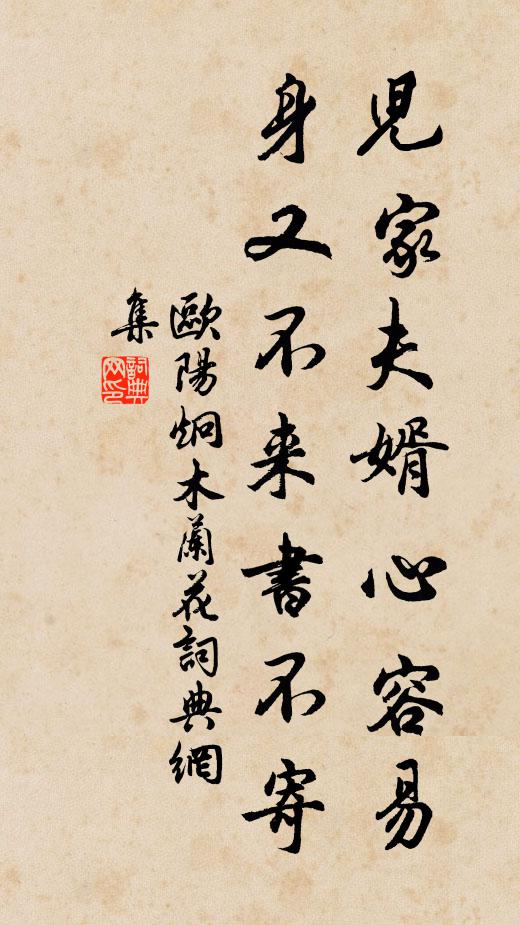 児家夫婿心容易
身又不来書不寄
歐陽炯木蘭花詞典網
集
詞典
网印